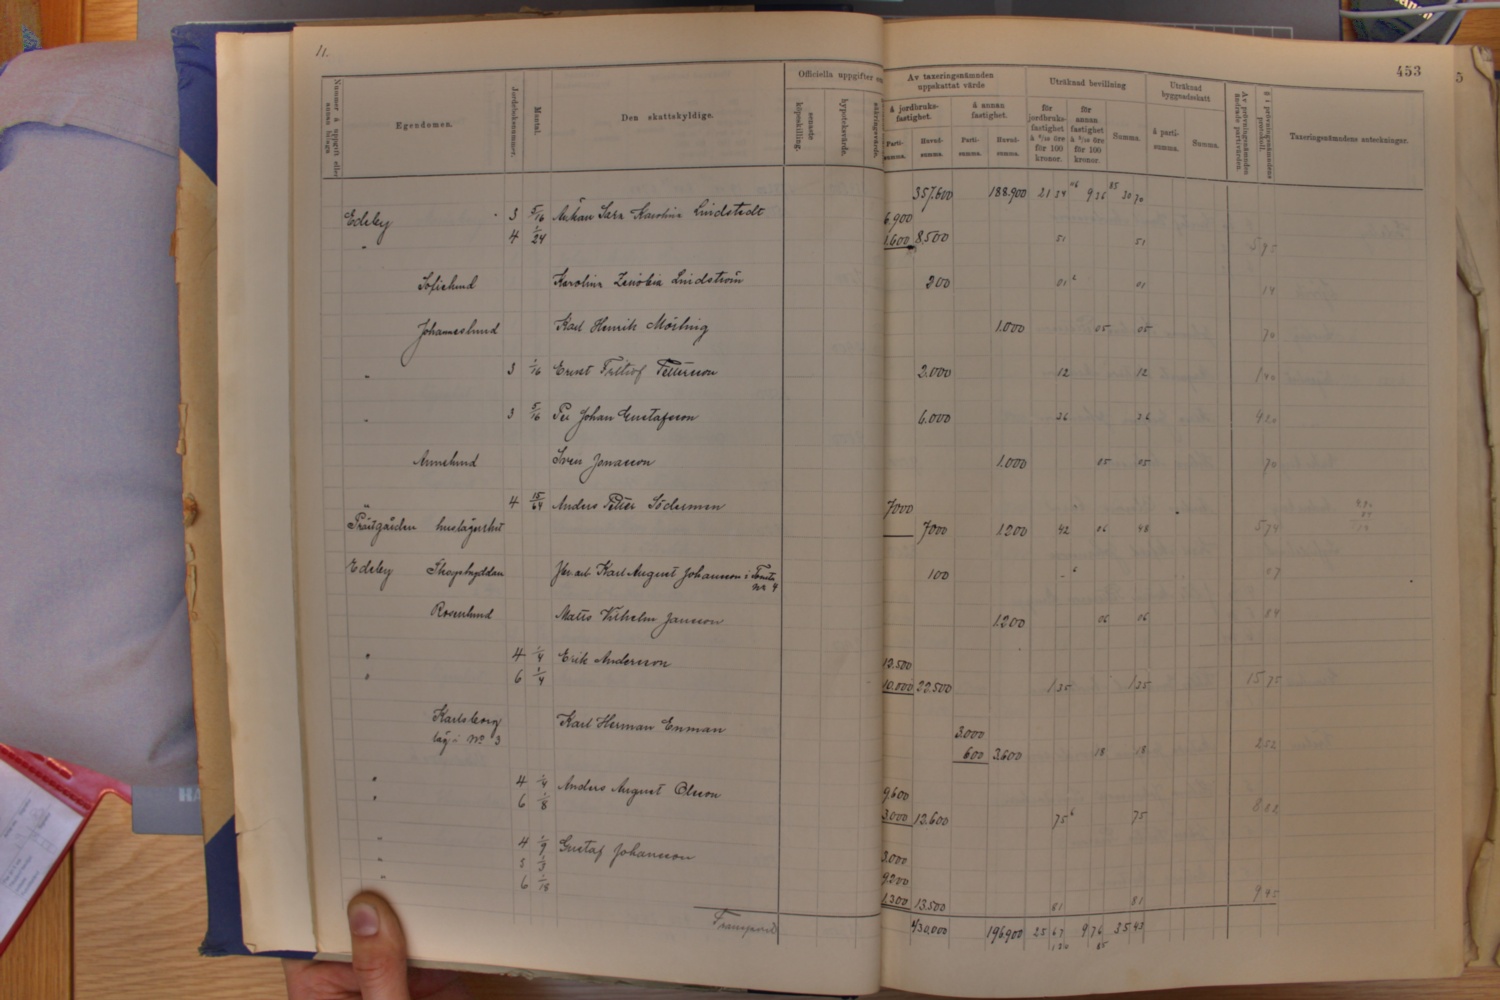 11.
453
Nummer å uppgift eller annan bilaga
Egendomen.
Jordeboksnummer.
Mantal.
Den skattskyldige.
Officiella uppgifter om
senaste köpeskilling.
hypoteksvärde.
Av taxeringsnämnden uppskattat värde
å jordbruksfastighet.
å annan fastighet.
Partisumma.
Huvudsumma.
Partisumma.
Huvudsumma.
Uträknad bevillning
för jordbruksfastighet å 6/10 öre för 100 kronor.
för annan fastighet å 5/10 öre för 100 kronor.
Summa.
Uträknad byggnadsskatt
å partisumma.
Summa.
Av prövningsnämnden ändrade partivärden.
Taxeringsnämndens anteckningar.
357.600 188.900
Edeby 3 5/16 Änkan Sara Karolina Lindstedt 6.900
" 4 1/24 1.600 8.500 51 51 5 95
Sofielund Karolina Zenobia Lindström 200 01 01 14
Johanneslund Karl Henrik Mörling 1.000 05 05 70
" 3 1/16 Ernst Fritiof Pettersson 2.000 12 12 1 40
" 3 5/16 Per Johan Gustafsson 6.000 36 36 4 20
Annelund Sven Jonasson 1.000 05 05 70
" 4 15/64 Anders Petter Söderman 7000
Prästgården huslägenhet 7000 1.200 42 06 48 5 74
Edeby Skogshyddan Karl August Johansson i Tomta No 4 100 07
Rosenlund Matts Vilhelm Jansson 1.200 06 06 84
" 4 1/4 Erik Andersson 12.500
" 6 1/4 10.000 22.500 1 35 1 35 15 75
Karlsberg Karl Herman Enman 3.000
låg i No 3 600 3.600 18 18 2 52
" 4 1/4 Anders August Olsson 9.600
" 6 1/8 3.000 12.600 75 75 8 82
" 4 1/9 Gustaf Johansson 3.000
" 5 1/3 9.200
" 6 1/18 1.300 13.500 81 81 9 45
Transport 430.000 196900 25 67 9 76 35 43